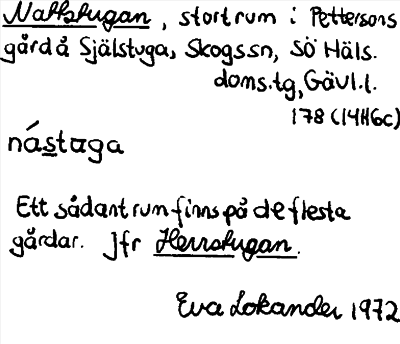 Nattstugan, stort rum i Pettersons
gård å Själstuga, Skogs sn, SÖ Häls.
doms.tg, Gävl.l.
178 (14H6c)
nástaga
Ett sådant rum finns på de flesta
gårdar. Jfr Herrstugan.
Eva Lokander 1972